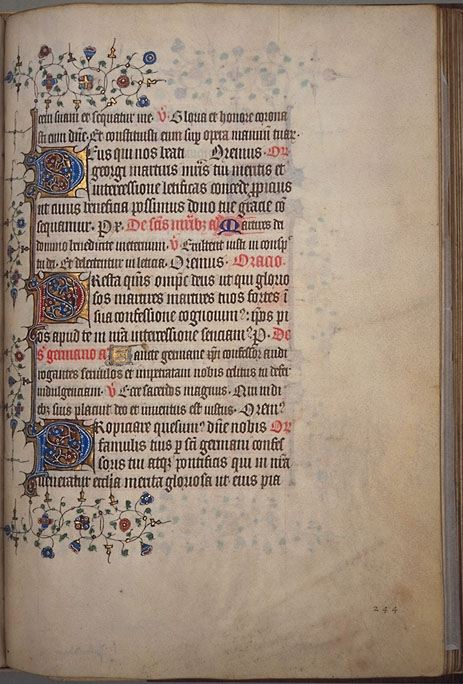 cem suam et sequatur me. V. Gloria et honore corona
sti eum dñe. Et constituisti eum sup opera manuū tuar̄.
Deus qui nos beati Oremus. Or
georgi martiris mr̄is tui meritis et
intercessione letificas concede ꝓpicius
ut cuius beneficia possimus dono tue gracie cō
sequamur. P x. De scīs mr̄ibȝ añ Martires dn̄i
domino benedicite in eternum. V. Exultent iusti in consp̄c
tu dei. Et delectentur in leticia. Oremus. Oracio.
Presta qūs om̄ps deus ut qui glorio
sos martires martires tuos fortes ī
sua confessione cognouim9: ip̄os pi
os apud te in nr̄a intercessione senciam9. P. De
sō germano añ Sancte germane xp̄i confessor audi
rogantes seruulos et impetratam nobis celitus tu defer
indulgenciam. V. Ecce sacerdos magnus. Qui in di
ebȝ suis placuit deo et inuentus est iustus. Orem9.
Propiciare quesum9 dñe nobis Or
famulis tuis p scī germani confes
soris tui atqȝ pontificis qui in nr̄a
ueneratur ecclīa merita gloriosa ut eius pia
244